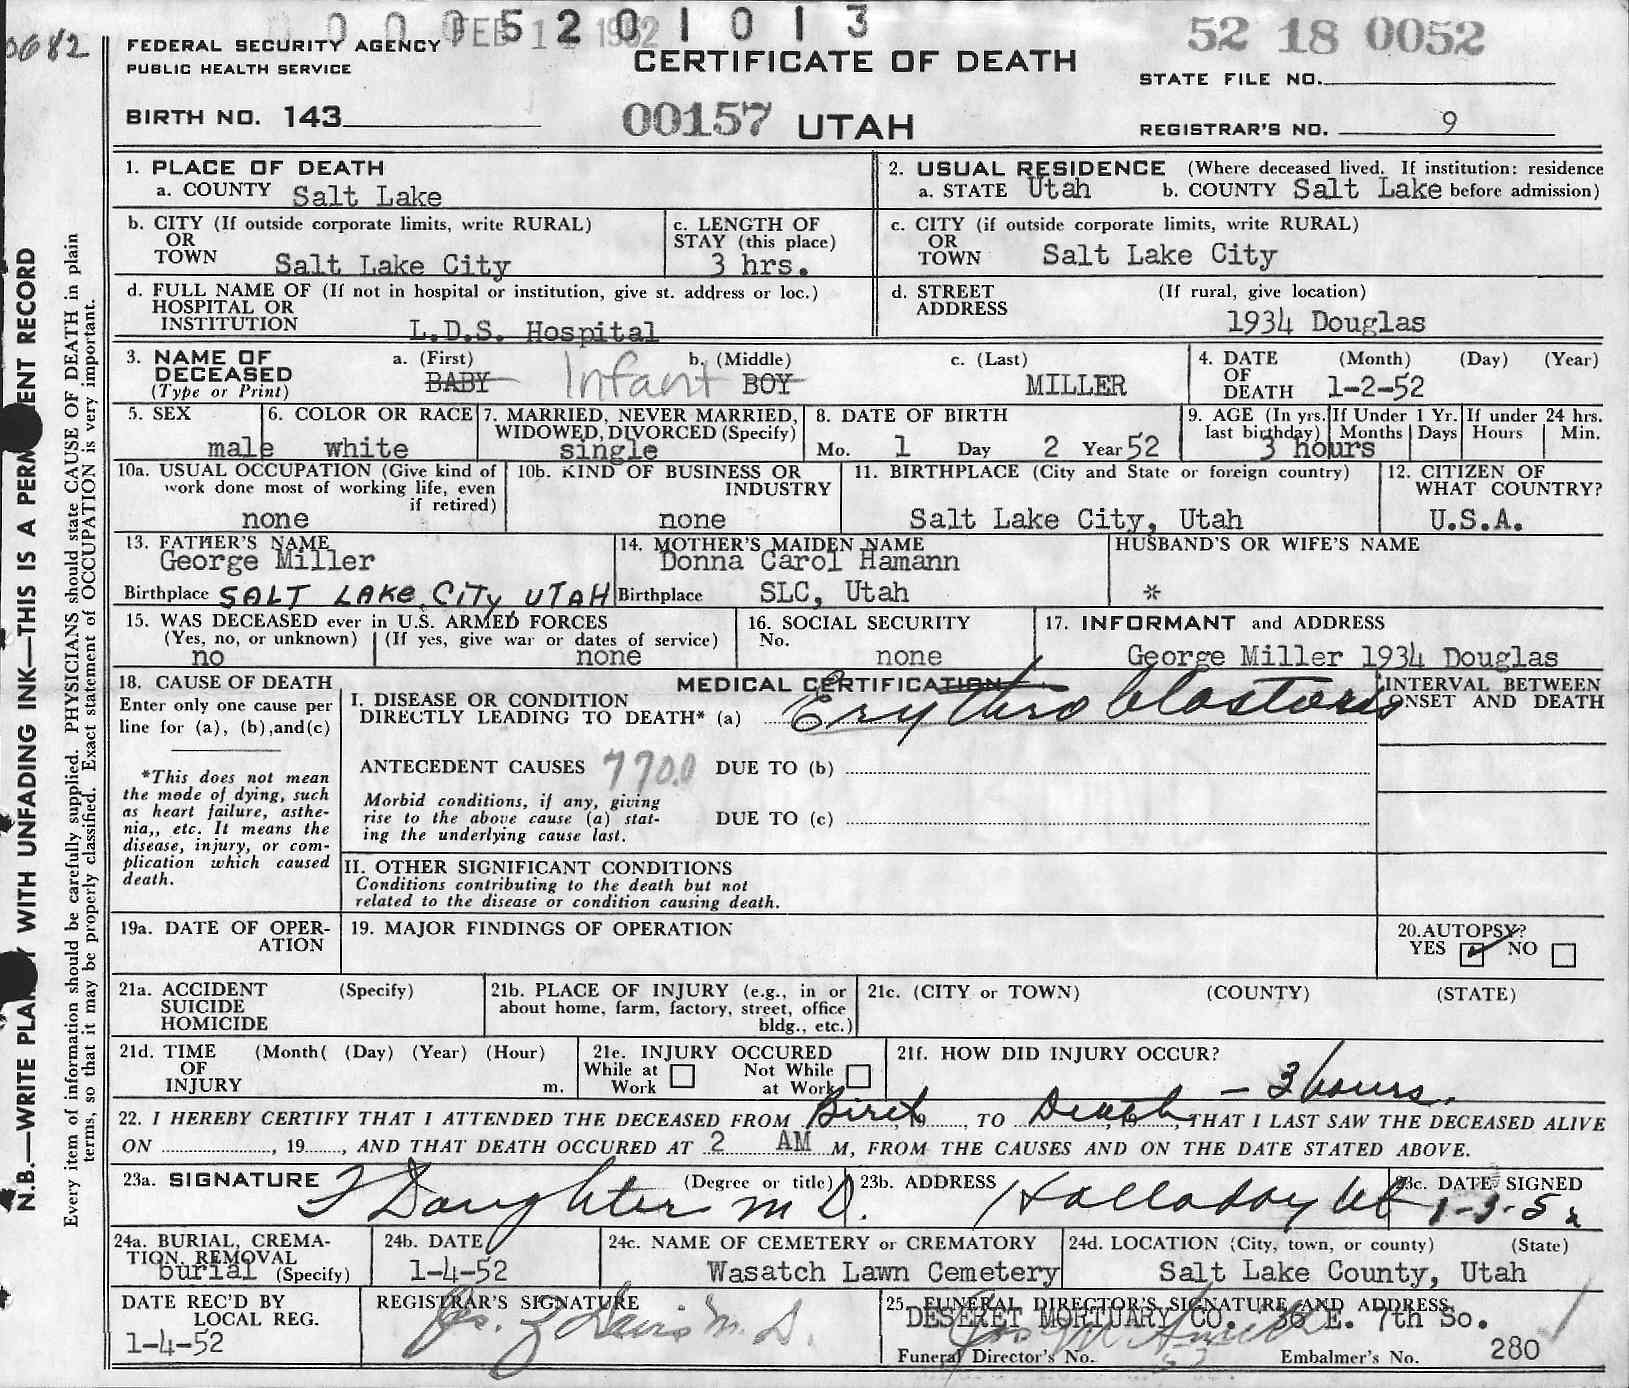 0682
0 0 0 5 2 0 1 0 1 3
FEB 1 1952
52 18 0052
FEDERAL SECURITY AGENCY
PUBLIC HEALTH SERVICE
CERTIFICATE OF DEATH
STATE FILE NO.
BIRTH NO. 143
00157 UTAH
REGISTRAR'S NO. 9
N.B.—WRITE PLAINLY WITH UNFADING INK—THIS IS A PERMANENT RECORD
Every item of information should be carefully supplied. PHYSICIANS should state CAUSE OF DEATH in plain
terms, so that it may be properly classified. Exact statement of OCCUPATION is very important.
1. PLACE OF DEATH
a. COUNTY Salt Lake
2. USUAL RESIDENCE (Where deceased lived. If institution: residence
a. STATE Utah b. COUNTY Salt Lake before admission)
b. CITY (If outside corporate limits, write RURAL)
OR
TOWN Salt Lake City
c. LENGTH OF
STAY (this place)
3 hrs.
c. CITY (if outside corporate limits, write RURAL)
OR
TOWN Salt Lake City
d. FULL NAME OF (If not in hospital or institution, give st. address or loc.)
HOSPITAL OR
INSTITUTION L.D.S. Hospital
d. STREET (If rural, give location)
ADDRESS
1934 Douglas
3. NAME OF
DECEASED
(Type or Print)
a. (First) b. (Middle) c. (Last)
BABY Infant BOY MILLER
4. DATE (Month) (Day) (Year)
OF
DEATH 1-2-52
5. SEX
male
6. COLOR OR RACE
white
7. MARRIED, NEVER MARRIED,
WIDOWED, DIVORCED (Specify)
single
8. DATE OF BIRTH
Mo. 1 Day 2 Year 52
9. AGE (In yrs. If Under 1 Yr. If under 24 hrs.
last birthday) Months Days Hours Min.
3 hours
10a. USUAL OCCUPATION (Give kind of
work done most of working life, even
if retired)
none
10b. KIND OF BUSINESS OR
INDUSTRY
none
11. BIRTHPLACE (City and State or foreign country)
Salt Lake City, Utah
12. CITIZEN OF
WHAT COUNTRY?
U.S.A.
13. FATHER'S NAME
George Miller
Birthplace SALT LAKE, CITY, UTAH
14. MOTHER'S MAIDEN NAME
Donna Carol Hamann
Birthplace SLC, Utah
HUSBAND'S OR WIFE'S NAME
*
15. WAS DECEASED ever in U.S. ARMED FORCES
(Yes, no, or unknown) (If yes, give war or dates of service)
no none
16. SOCIAL SECURITY
No.
none
17. INFORMANT and ADDRESS
George Miller 1934 Douglas
18. CAUSE OF DEATH
Enter only one cause per
line for (a), (b), and (c)
*This does not mean
the mode of dying, such
as heart failure, asthe-
nia,, etc. It means the
disease, injury, or com-
plication which caused
death.
MEDICAL CERTIFICATION
I. DISEASE OR CONDITION
DIRECTLY LEADING TO DEATH* (a) Erythroblastosis
INTERVAL BETWEEN
ONSET AND DEATH
ANTECEDENT CAUSES 770.0 DUE TO (b)
Morbid conditions, if any, giving
rise to the above cause (a) stat-
ing the underlying cause last.
DUE TO (c)
II. OTHER SIGNIFICANT CONDITIONS
Conditions contributing to the death but not
related to the disease or condition causing death.
19a. DATE OF OPER-
ATION
19. MAJOR FINDINGS OF OPERATION
20. AUTOPSY?
YES NO
21a. ACCIDENT (Specify)
SUICIDE
HOMICIDE
21b. PLACE OF INJURY (e.g., in or
about home, farm, factory, street, office
bldg., etc.)
21c. (CITY or TOWN) (COUNTY) (STATE)
21d. TIME (Month( (Day) (Year) (Hour)
OF
INJURY m.
21e. INJURY OCCURED
While at Not While
Work at Work
21f. HOW DID INJURY OCCUR?
22. I HEREBY CERTIFY THAT I ATTENDED THE DECEASED FROM Birth, 19 , TO Death, 19 , - 3 hours. THAT I LAST SAW THE DECEASED ALIVE
ON , 19 , AND THAT DEATH OCCURED AT 2 AM M, FROM THE CAUSES AND ON THE DATE STATED ABOVE.
23a. SIGNATURE (Degree or title)
F Daughters M D.
23b. ADDRESS
Holladay Ut
23c. DATE SIGNED
1-3-52
24a. BURIAL, CREMA-
TION, REMOVAL
burial (Specify)
24b. DATE
1-4-52
24c. NAME OF CEMETERY or CREMATORY
Wasatch Lawn Cemetery
24d. LOCATION (City, town, or county) (State)
Salt Lake County, Utah
DATE REC'D BY
LOCAL REG.
1-4-52
REGISTRAR'S SIGNATURE
Davis M. D.
25. FUNERAL DIRECTOR'S SIGNATURE AND ADDRESS
DESERET MORTUARY CO. 36 E. 7th So.
Funeral Director's No. Embalmer's No. 280